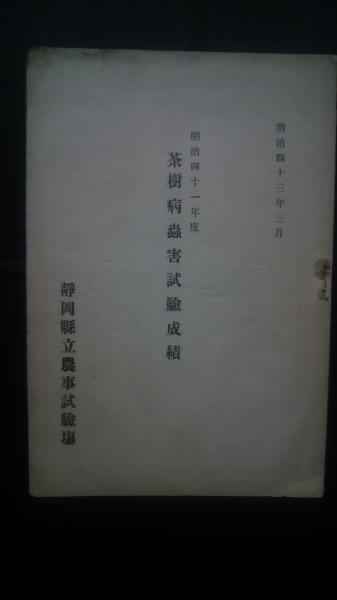 明治四十三年三月
明治四十一年度
茶樹病蟲害試驗成績
靜岡縣立農事試驗塲